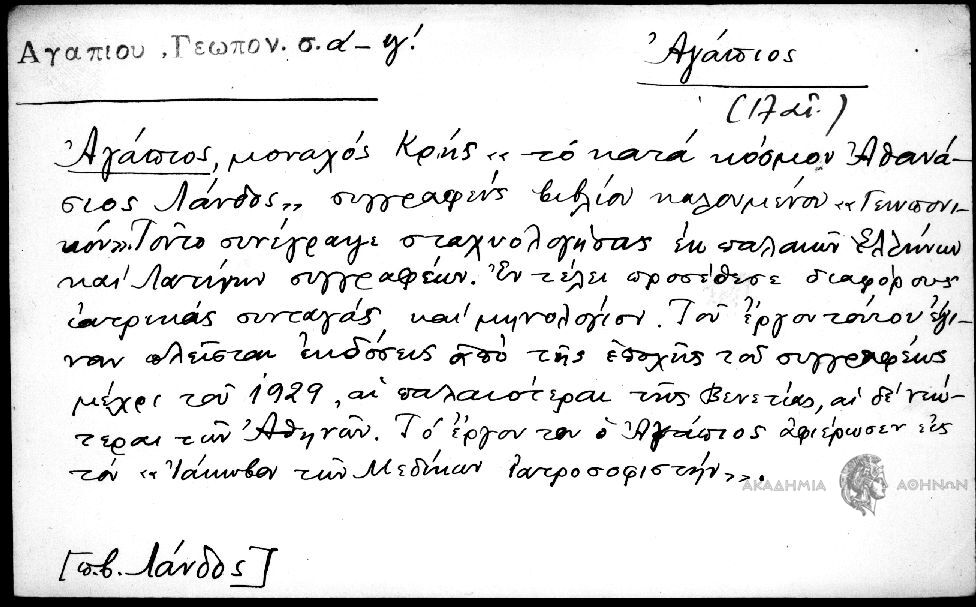 Αγαπιου, Γεωπον. σ. α - γ!
Ἀγάπιος
(17 αἰ.)
Ἀγάπιος, μοναχός Κρής «τό κατά κόσμον Ἀθανά-
σιος Λάνδος», συγγραφεύς βιβλίου καλουμένου «Γεωπονι-
κόν». Τοῦτο συνέγραψε σταχυολογήσας ἐκ παλαιῶν Ἑλλήνων
καί Λατίνων συγγραφέων. Ἐν τέλει προσέθεσε διαφόρους
ἰατρικάς συνταγάς καί μηνολόγιον. Τοῦ ἔργου τούτου ἐγέ-
ναν πλεῖσται ἐκδόσεις ἀπό τῆς ἐποχῆς τοῦ συγγραφέως
μέχρι τοῦ 1929, αἱ παλαιότεραι τῆς Βενετίας, αἱ δέ νεώ-
τεραι τῶν Ἀθηνῶν. Τό ἔργον του ὁ Ἀγάπιος ἀφιέρωσεν εἰς
τόν «Ἰάκωβον τῶν Μεδίκων ἰατροσοφιστήν».
ΑΚΑΔΗΜΙΑ ΑΘΗΝΩΝ
[π.β. Λάνδος]